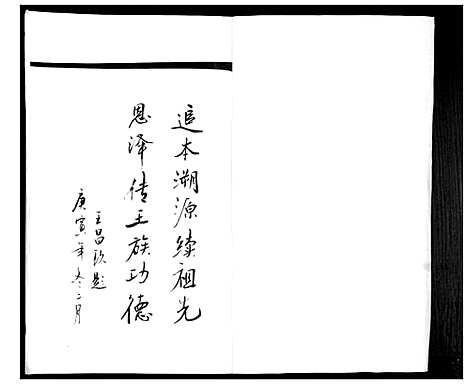 追本溯源续祖光
恩泽传王族功德
王昌 题
庚寅年冬二月